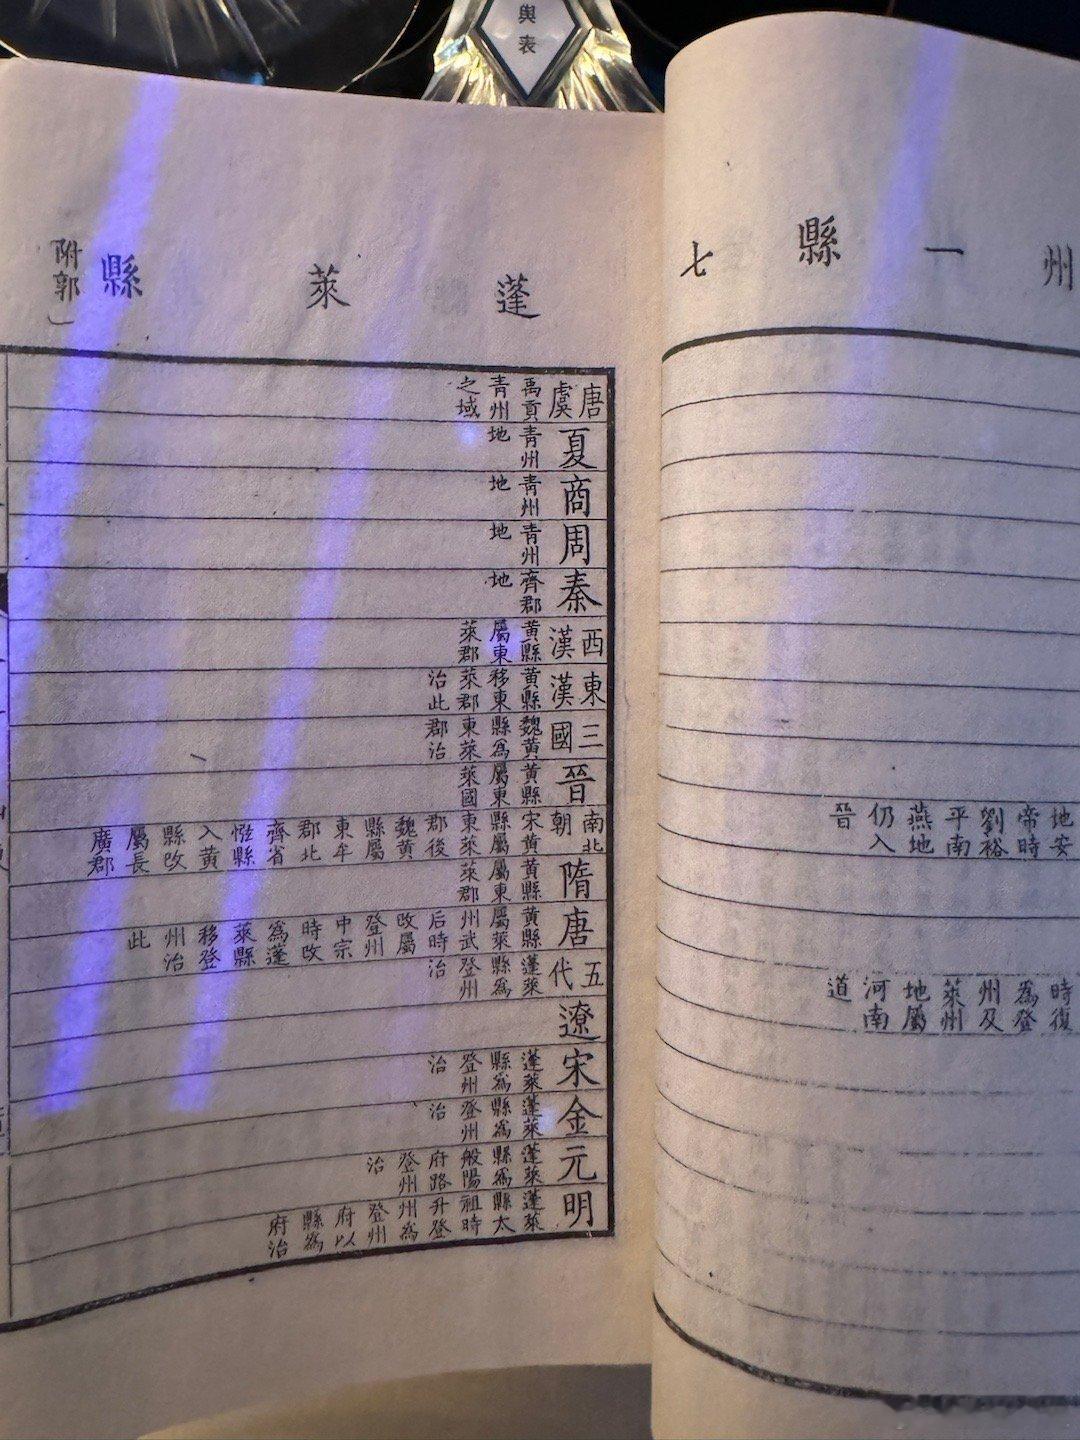 輿表
州一縣七
地安
帝時
劉裕
平南
燕地
仍入
晉
時復
為登
州及
萊州
地屬
河南
道
蓬萊縣
附郭
唐虞
禹貢
青州
之域
夏
青州
地
商
青州
地
周
青州
地
秦
齊郡
地
西漢
黃縣
屬東
萊郡
東漢
黃縣
移東
萊郡
治此
三國
魏黃
縣為
東萊
郡治
晉
黃縣
屬東
萊國
南北朝
宋黃
縣屬
東萊
郡後
魏黃
縣屬
東牟
郡北
齊省
㡉縣
入黃
縣改
屬長
廣郡
隋
黃縣
屬東
萊郡
唐
黃縣
屬萊
州武
后時
改屬
登州
中宗
時改
為蓬
萊縣
移登
州治
此
五代
蓬萊
縣為
登州
治
遼
宋
蓬萊
縣為
登州
治
金
蓬萊
縣為
登州
治
元
蓬萊
縣為
般陽
府路
登州
治
明
蓬萊
縣太
祖時
升登
州為
登州
府以
縣為
府治